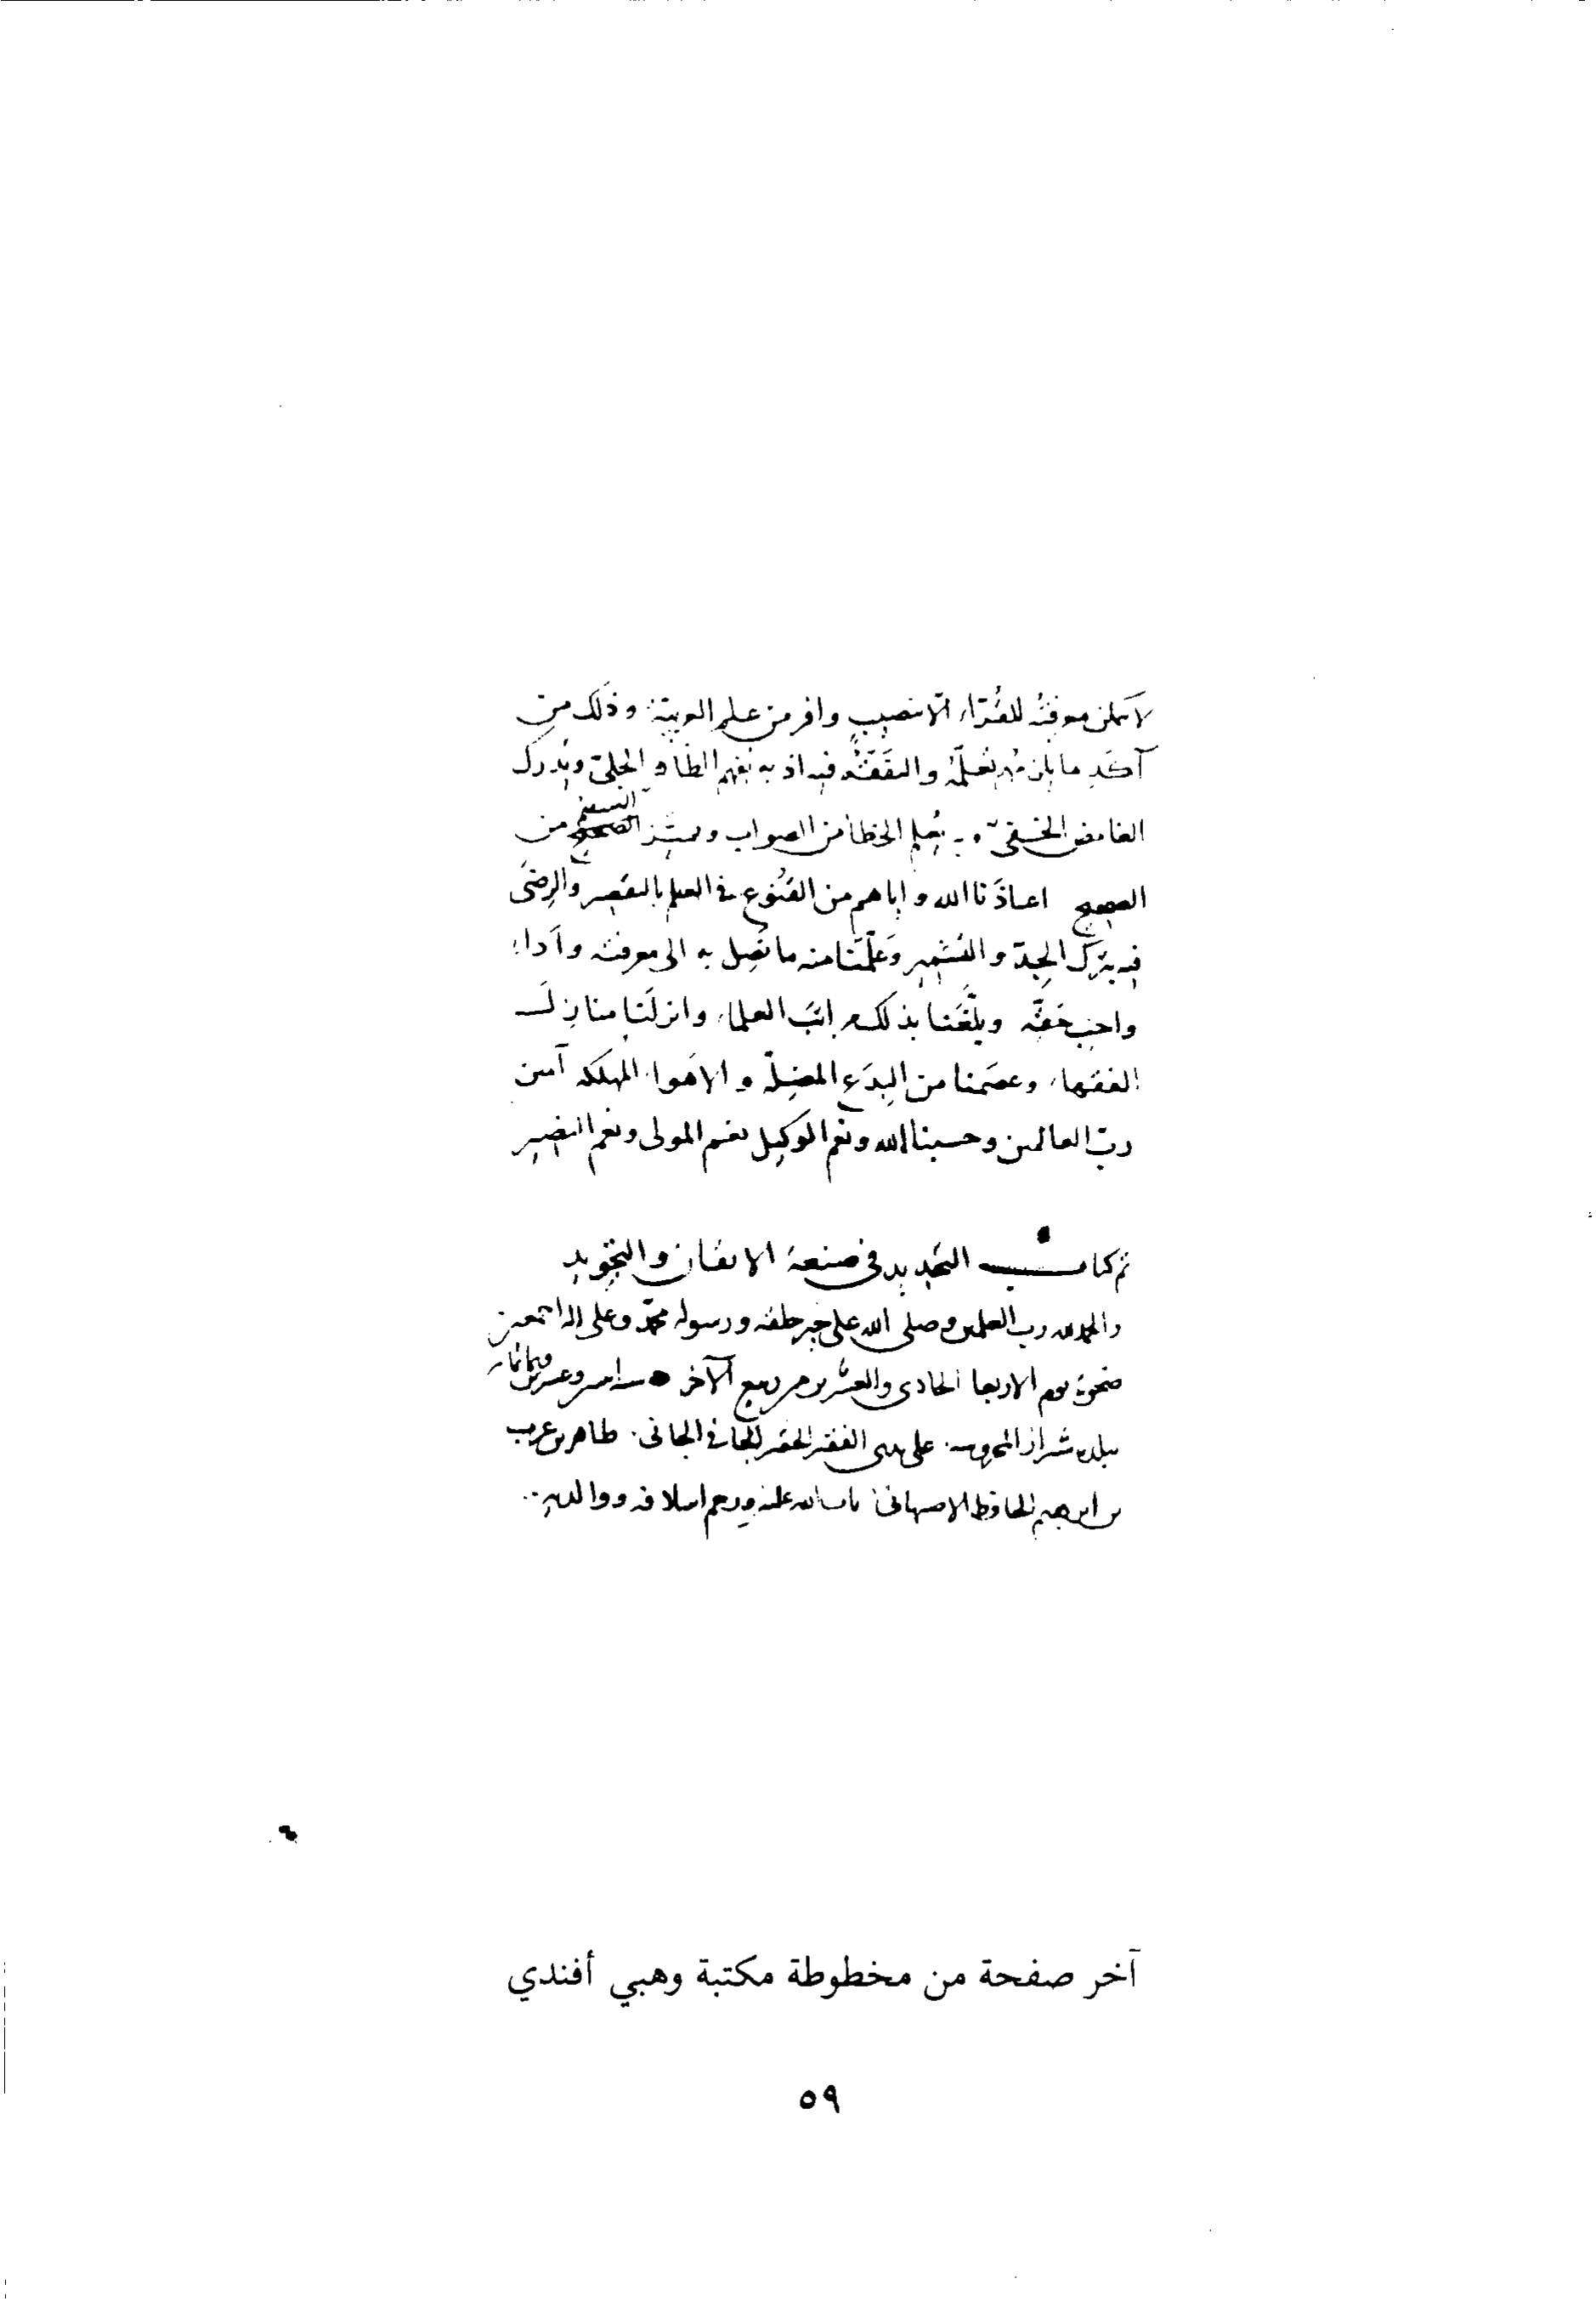 لا يمكن معرفته للقُرّاء الّا بنصيبٍ وافر من علم العربيّة وذلك من
آكدِ ما يلزمهم تعلّمُه والتفقّهُ فيه اذ به يُفهم الظاهر الجليّ ويُدرك
الغامض الخفيّ وبه يُعلم الخطأ من الصواب ويميّز السقيم من
الصحيح اعاذنا الله واياهم من القُنوع في العلم بالتقصير والرضى
فيه بترك الجِدّ والتشمير وعَلّمَنا منه ما نَصِل به الى معرفته وأداء
واجب حَقّه وبلّغَنا بذلك مراتب العلماء وانزلَنا منازل
الفقهاء وعصَمنا من البِدَع المضِلّة والاهواء المهلكه آمين
ربّ العالمين وحسبنا الله ونعم الوكيل نعم المولى ونعم النصير
تم كتاب التحديد في صنعة الاتقان والتجويد
والحمد لله رب العلمين وصلى الله على خير خلقه ورسوله محمّد وعلى اله اجمعين
ضحوة يوم الاربعا الحادى والعشرين من ربيع الآخر وعشرين وثمانمائه
ببلدة شيراز المحروسة على يدى الفقير الحقير الجافى الجانى طاهر بن عرب
بن ابرهيم الحافظ الاصبهانى تاب الله عليه ورحم اسلافه ووالديه
آخر صفحة من مخطوطة مكتبة وهبي أفندي
٥٩